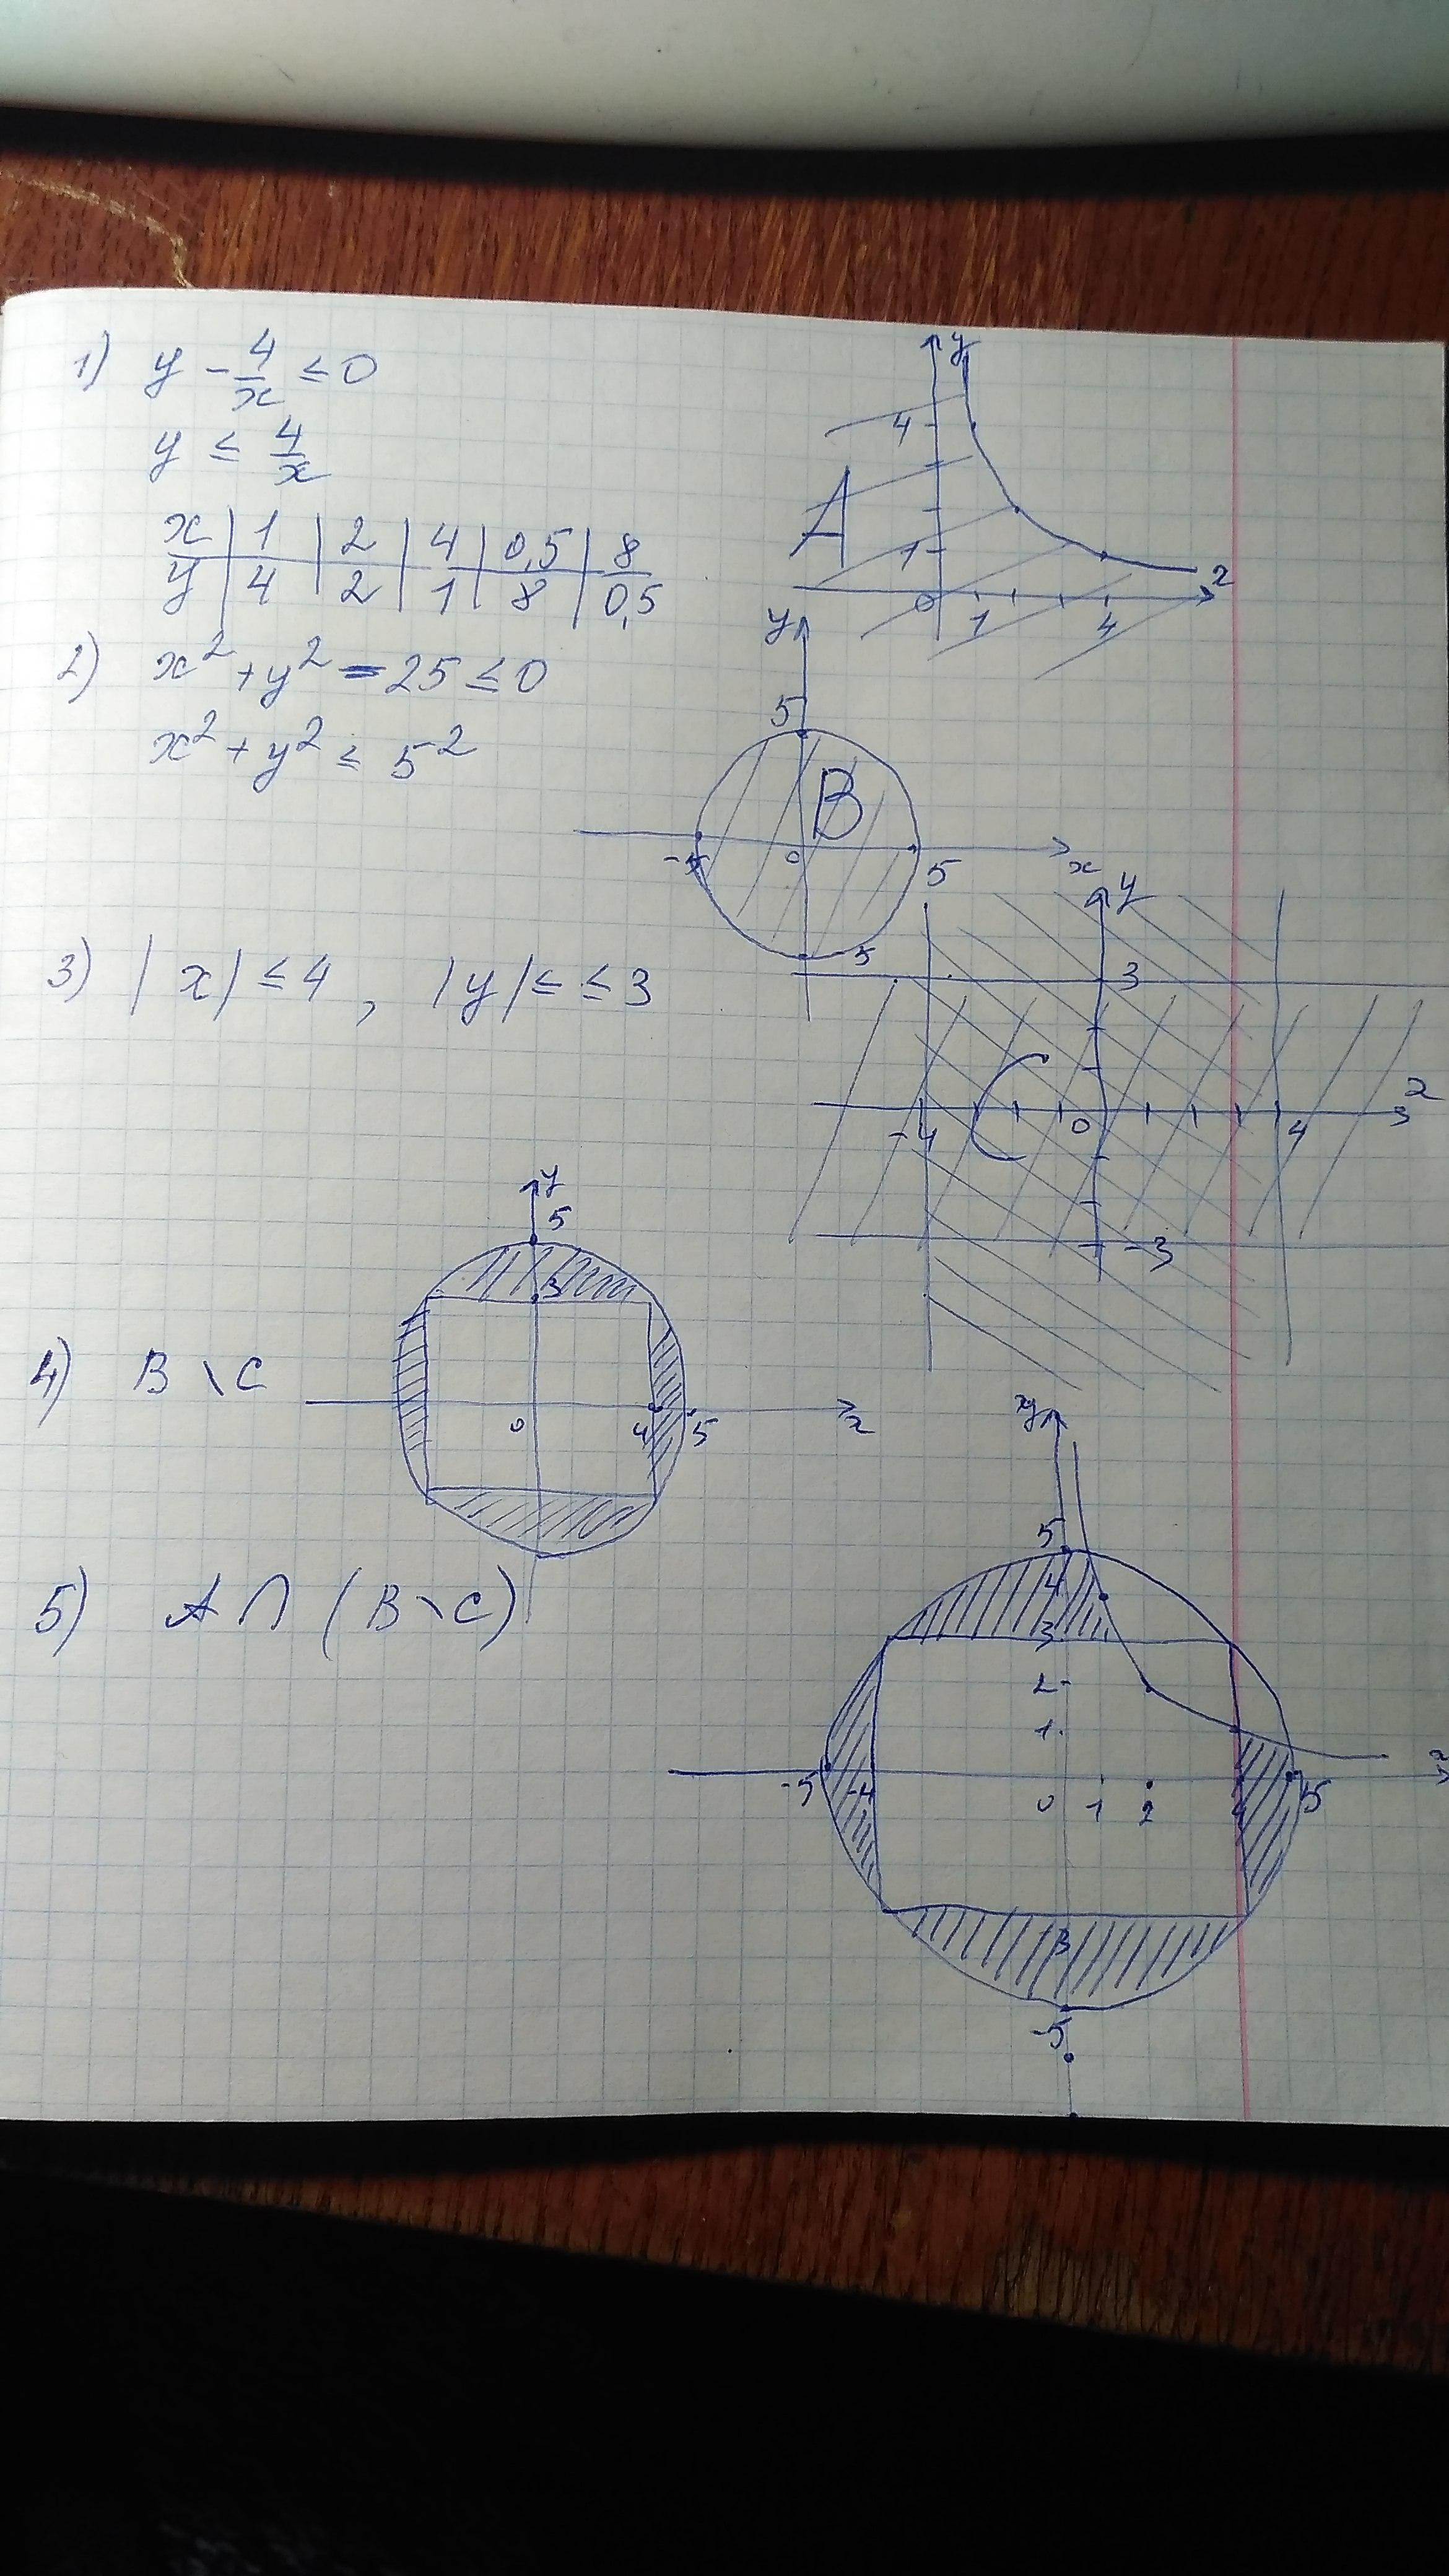 1) y - 4/x ≤ 0
y ≤ 4/x
x | 1 | 2 | 4 | 0,5 | 8
y | 4 | 2 | 1 | 8 | 0,5
y
4
A
1
0 1 4
x
2) x² + y² - 25 ≤ 0
x² + y² ≤ 5²
y
5
B
-5 0 5
x
5
3) |x| ≤ 4 , |y| ≤ ≤ 3
y
3
C
x
-4 0 4
-3
4) B \ C
y
5
3
0 4 5
x
5) A ∩ (B \ C)
y
5
4
3
2
1
x
-5 -4 0 1 2 4 5
3
-5